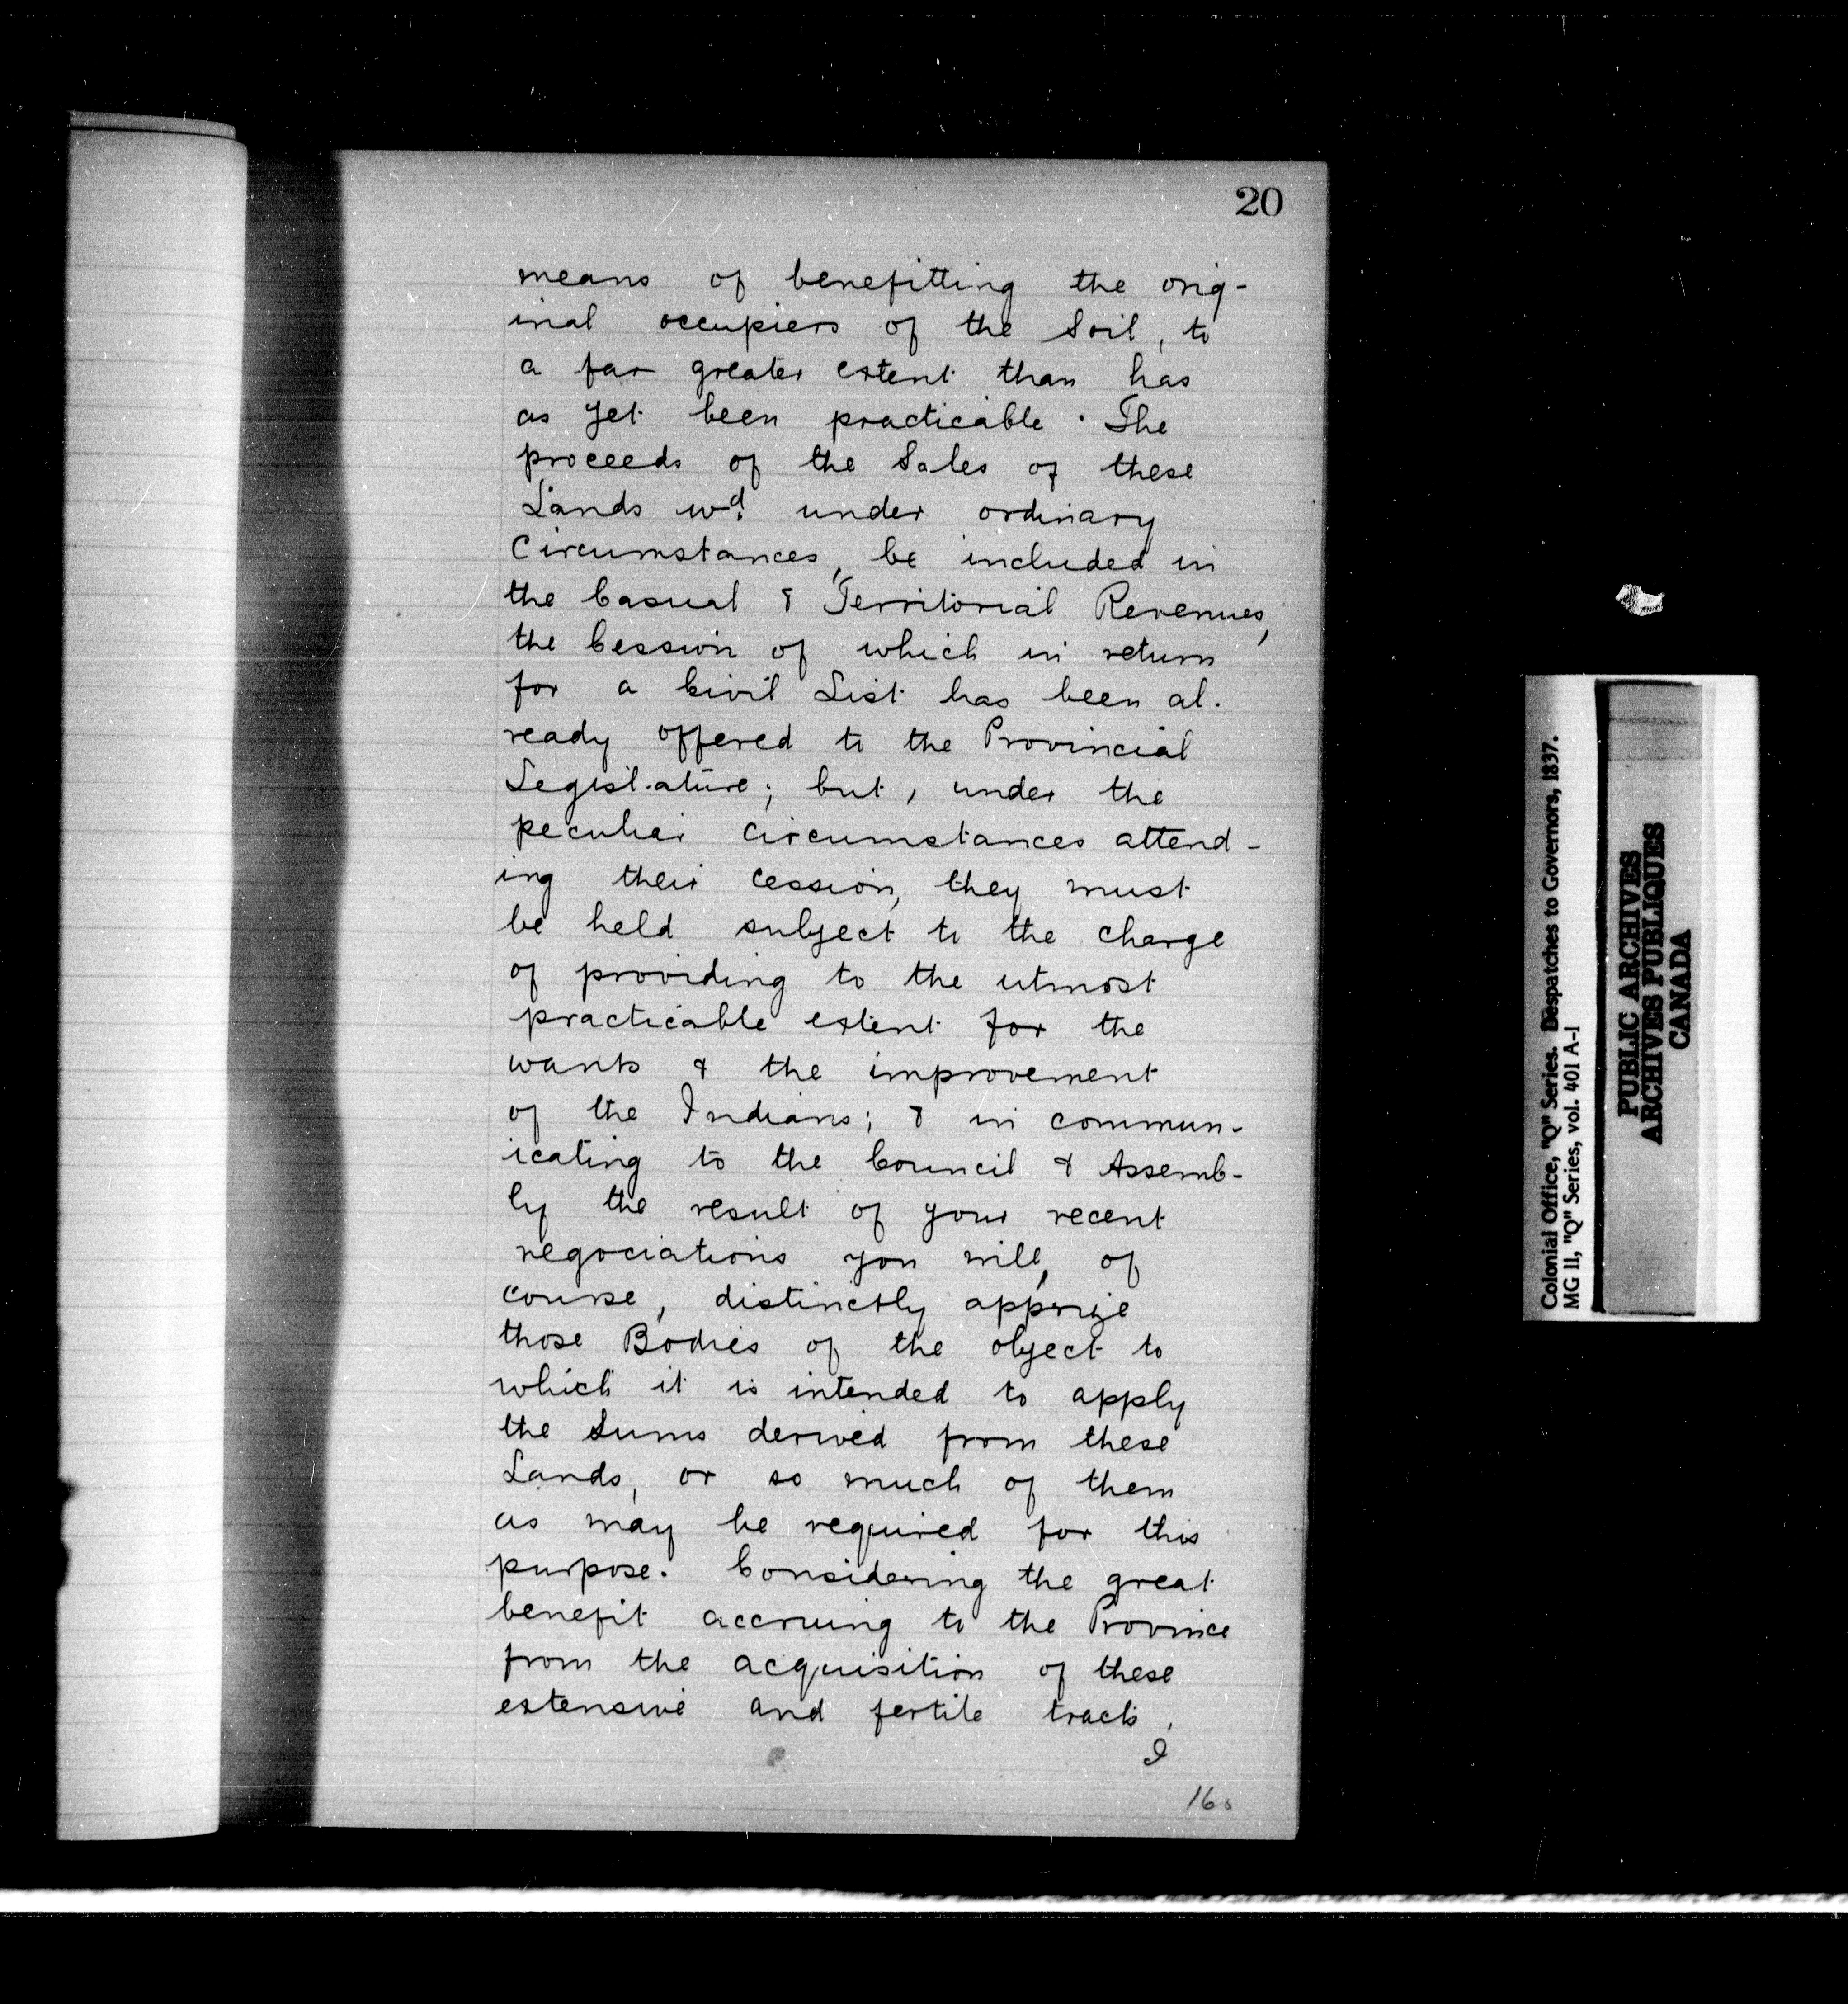 20
means of benefitting the orig-
inal occupiers of the Soil, to
a far greater extent than has
as yet been practicable. The
proceeds of the Sales of these
Lands wd. under ordinary
Circumstances, be included in
the Casual & Territorial Revenues,
the Cession of which in return
for a Civil List has been al-
ready offered to the Provincial
Legislature; but, under the
peculiar circumstances attend-
ing their cession, they must
be held subject to the charge
of providing to the utmost
practicable extent for the
wants & the improvement
of the Indians; & in commun-
icating to the Council & Assemb-
ly the result of your recent
negociations you will, of
course, distinctly apprize
those Bodies of the object to
which it is intended to apply
the Sums derived from these
Lands, or so much of them
as may be required for this
purpose. Considering the great
benefit accruing to the Province
from the acquisition of these
extensive and fertile tracts,
I
Colonial Office, "Q" Series. Despatches to Governors, 1837.
MG 11, "Q" Series, vol. 401 A-1
PUBLIC ARCHIVES
ARCHIVES PUBLIQUES
CANADA